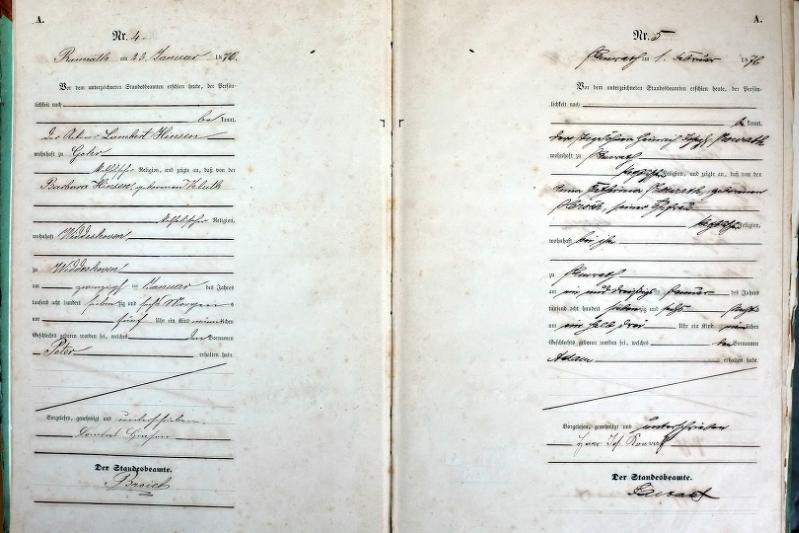 A.
Nr. 4.
am 23. Januar 1876.
Vor dem unterzeichneten Standesbeamten erschien heute, der Persön-
lichkeit nach
be kannt,
der Lambert Hinsen
wohnhaft zu Gohr
katholischer Religion, und zeigte an, daß von der
Barbara Hinsen, geborenen
katholischer Religion,
wohnhaft Widdeshoven
zu Widdeshoven
am zwanzigsten Januar des Jahres
tausend acht hundert siebenzig und sechs Morgens
um fünf Uhr ein Kind männlichen
Geschlechts geboren worden sei, welches den Vornamen
Peter erhalten habe.
Vorgelesen, genehmigt und unterschrieben
Lambert Hinsen
Der Standesbeamte.
Broich
A.
Nr. 5
am 1. Februar 1876
Vor dem unterzeichneten Standesbeamten erschien heute, der Persön-
lichkeit nach
be kannt,
der Heinrich Joseph
wohnhaft zu
katholischer Religion, und zeigte an, daß von der
Anna Catharina geborenen
seiner Ehefrau
katholischer Religion,
wohnhaft bei ihm
zu
am ein und dreißigsten Januar des Jahres
tausend acht hundert siebenzig und sechs
um ein halb drei Uhr ein Kind männlichen
Geschlechts geboren worden sei, welches den Vornamen
Adam erhalten habe.
Vorgelesen, genehmigt und unterschrieben
Der Standesbeamte.